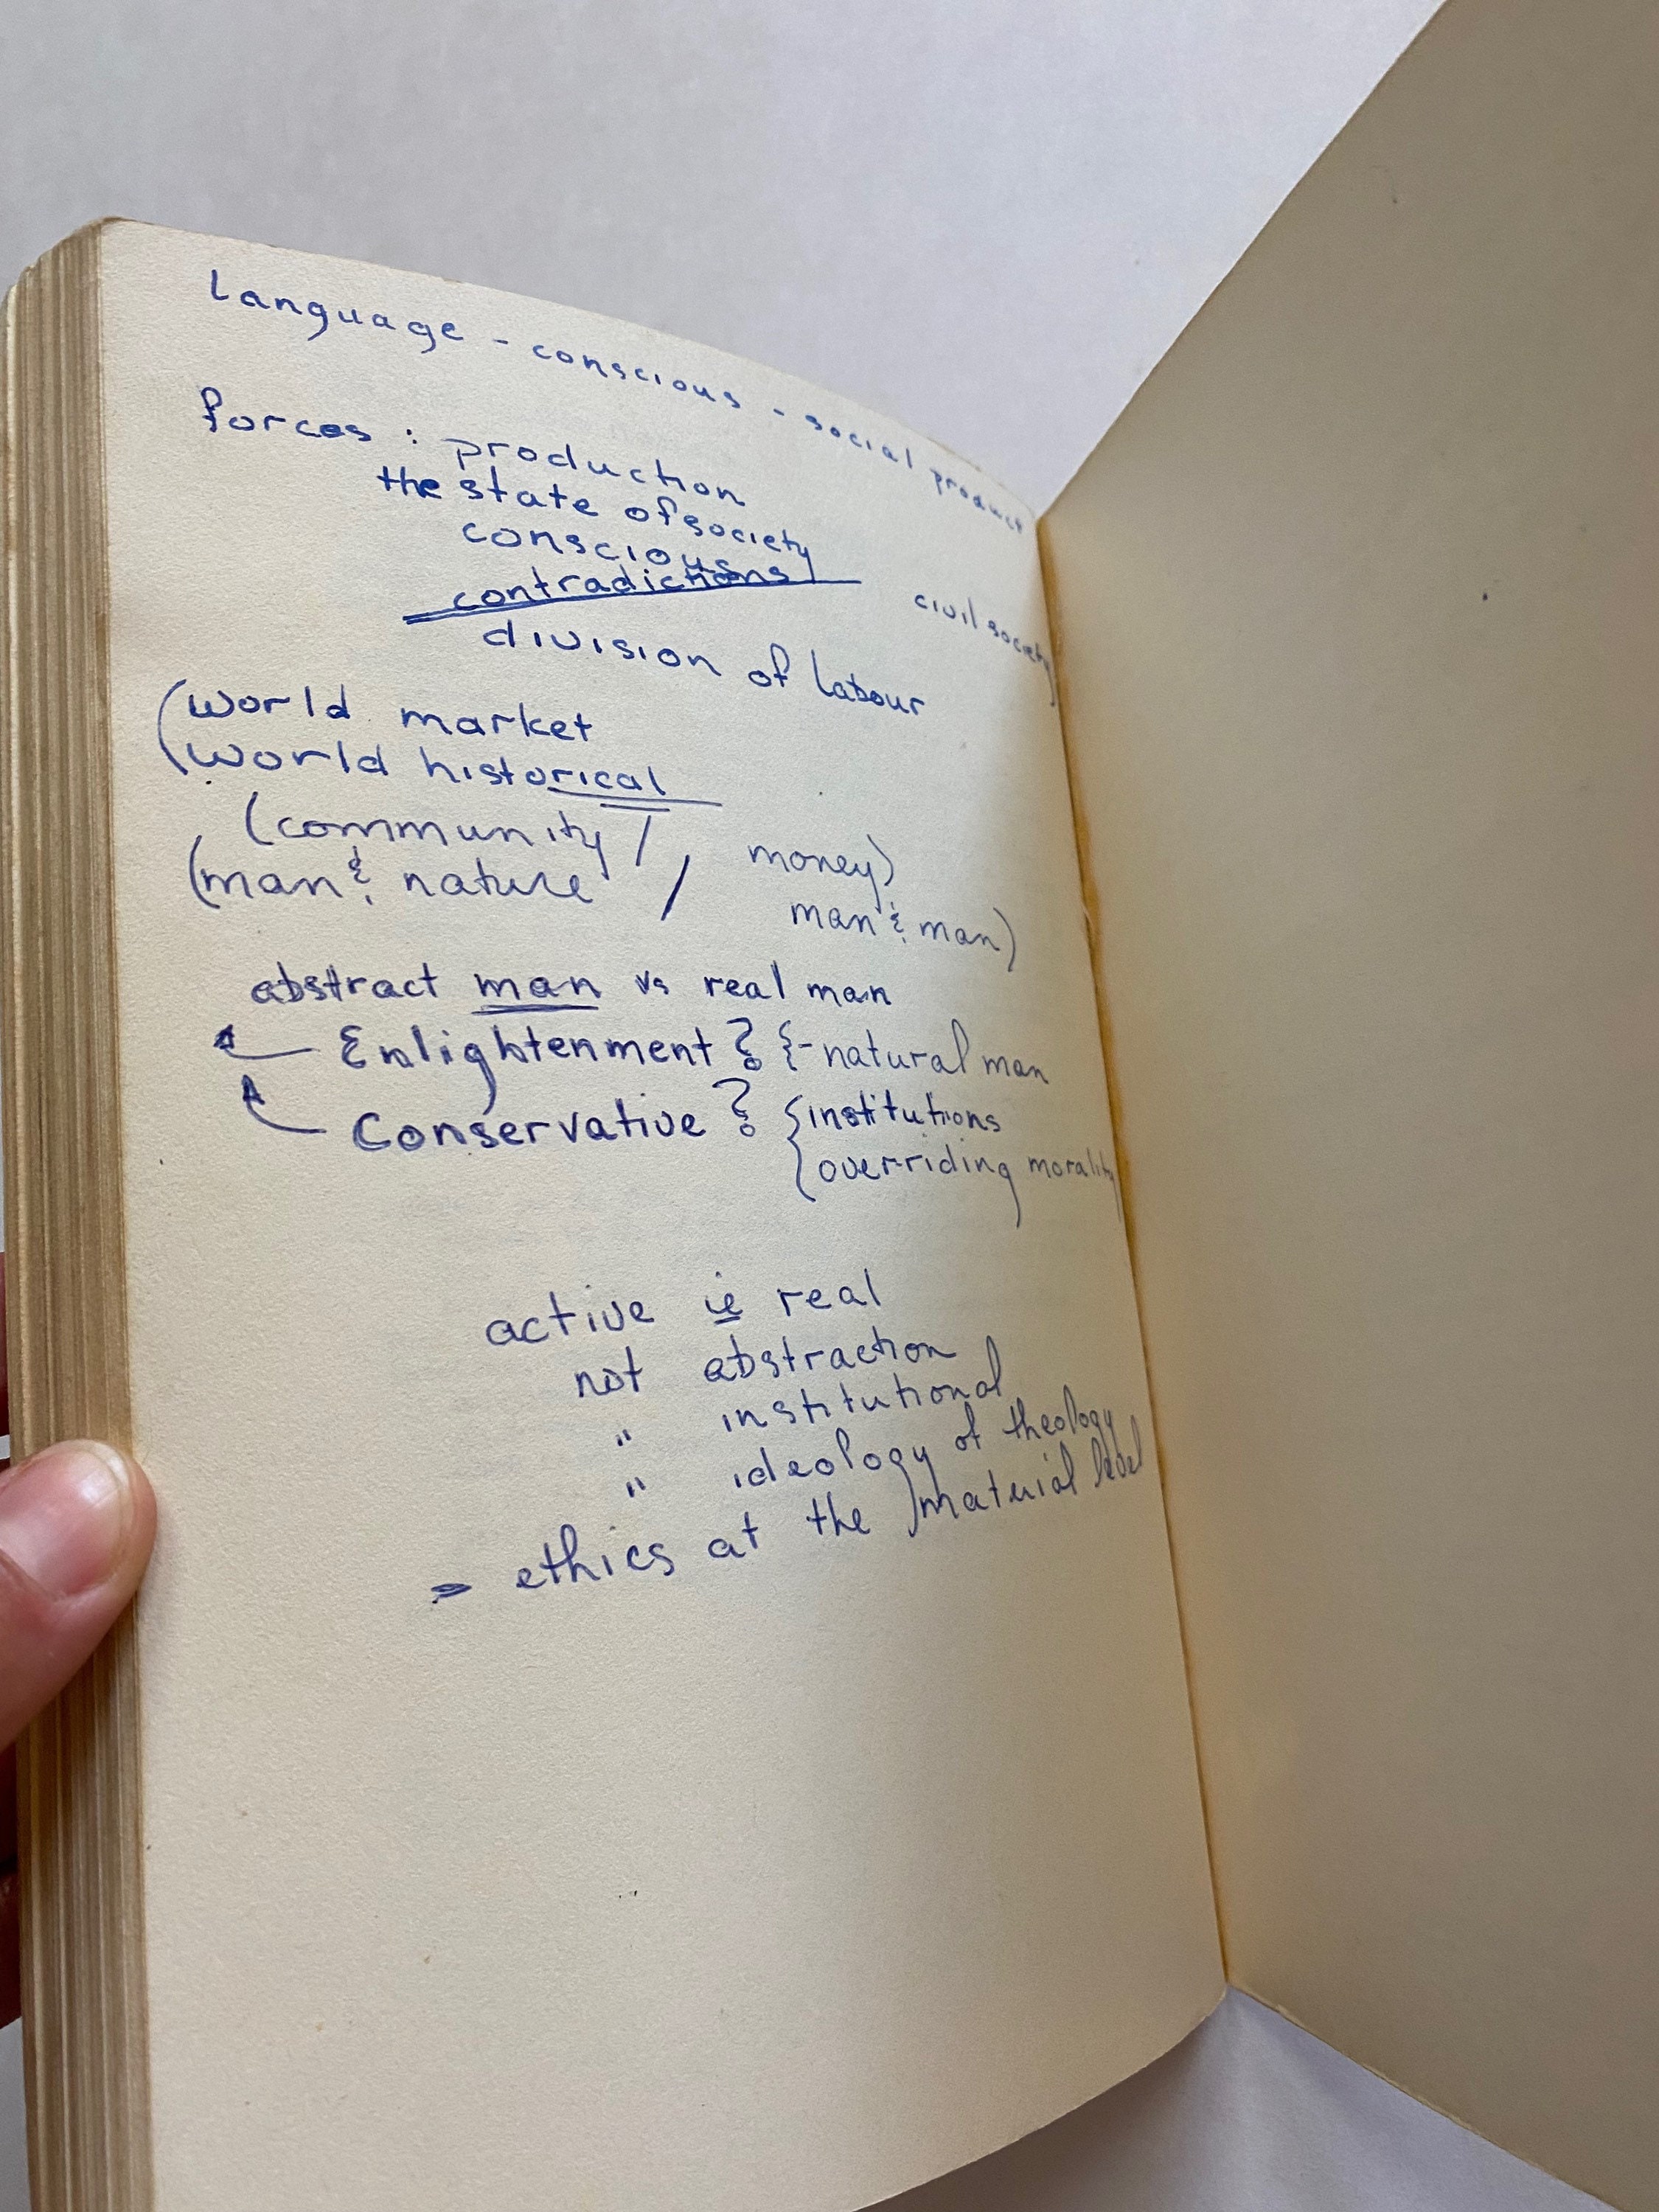 language - conscious - social product
forces : production
the state of society
conscious
contradictions
civil society
division of labour
(world market
(world historical
(community / money)
(man & nature / man & man)
abstract man vs real man
Enlightenment ? {- natural man
Conservative ? { institutions
overriding morality
active ie real
not abstraction
" institutional
" ideology of theology
= ethics at the material level